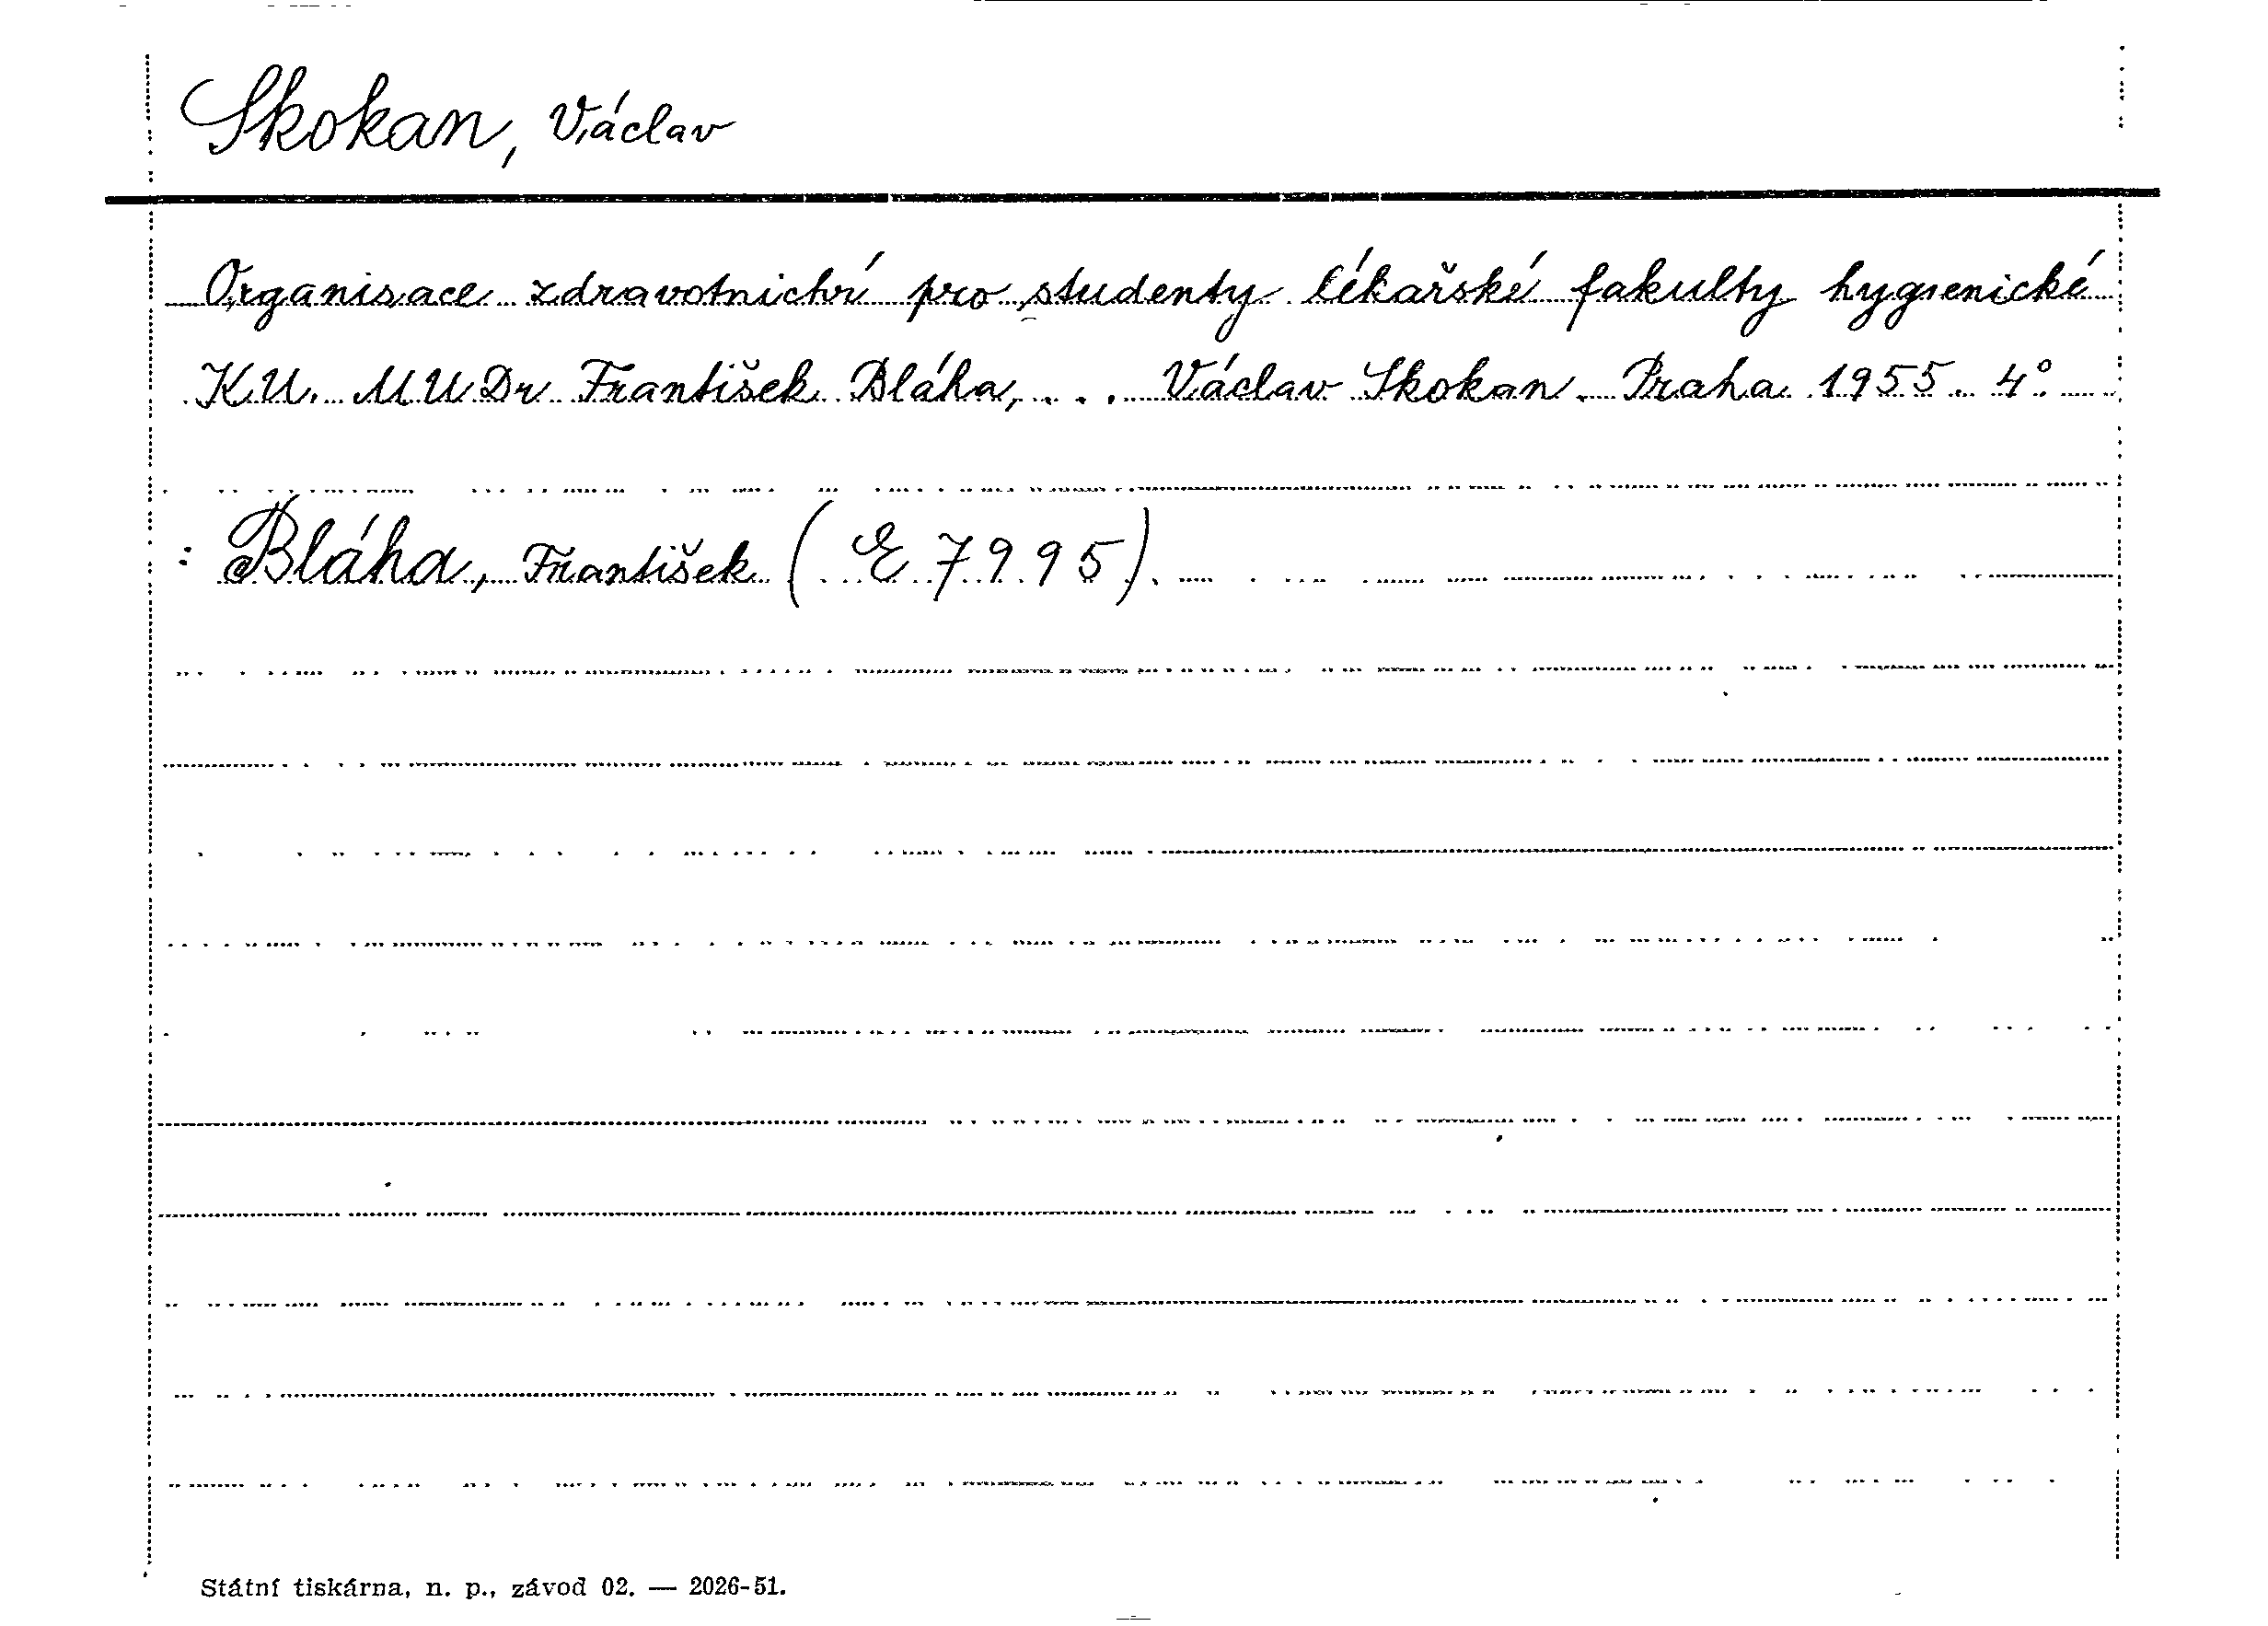 Skokan, Václav
Organisace zdravotnictví pro studenty lékařské fakulty hygienické
K.U. MUDr František Bláha, . . . Václav Skokan. Praha 1955. 4°.
: Bláha, František (E 7995).
Státní tiskárna, n. p., závod 02. — 2026-51.